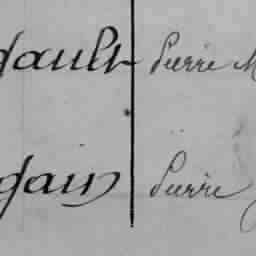 gault Pierre M
gain Pierre